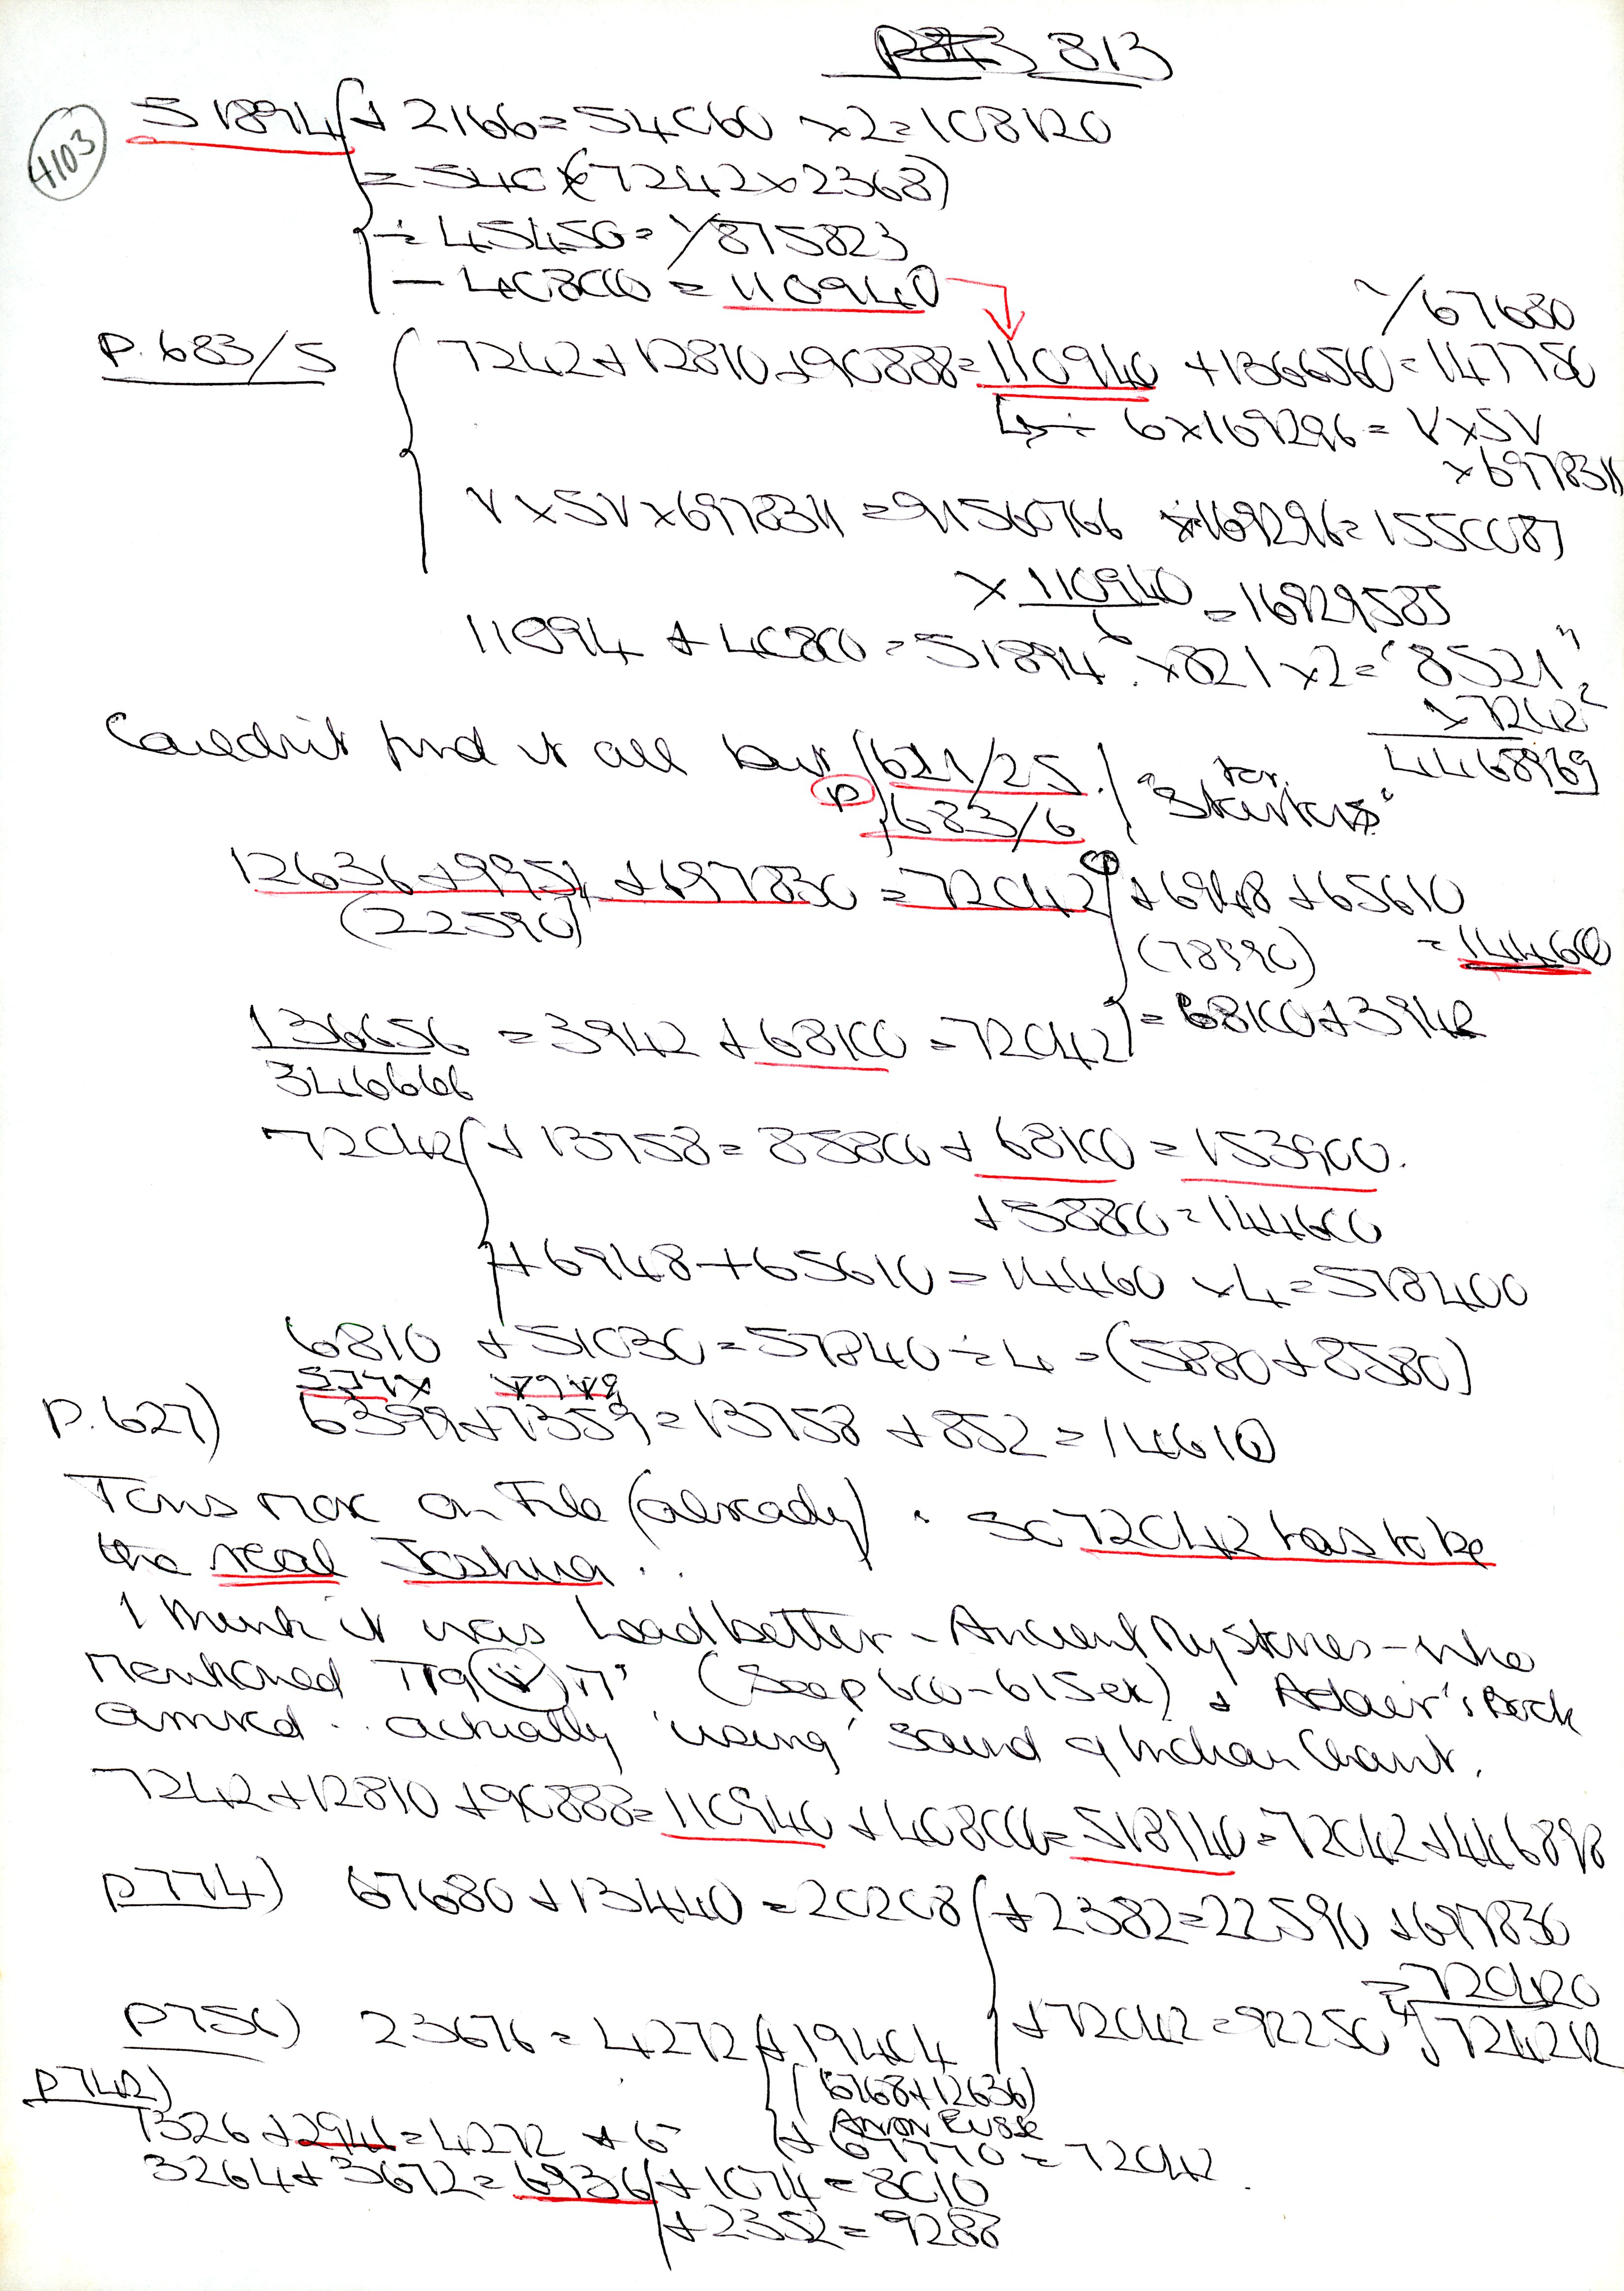 P843 813
4103
51894 + 2166 = 54060 x2 = 108120
= 540 x (7242 x 2368)
÷ 45450 = √875823
− 408000 = 110940
√67680
P. 683/5 7242 + 12810 + 90888 = 110940 + 1366560 = 147750
÷ 6 x 169296 = V x 5V
x 6978311
V x 5V x 6978311 = 91560766 ÷ 169296 = 1550087
x 110940/6 = 16929585
11094 + 40800 = 51894 . x 821 x 2 = "8521"
x 7242²
4468969
Couldn't find it all but p 621/25
683/6 for "Starters"
12636 + 9954 + 697830 = 72042 + 6948 + 65610
(22590) (78990) = 144600
136656 = 3942 + 68100 = 72042 = 68100 + 3942
346666
72042 + 13758 = 85800 + 68100 = 153900.
+ 58800 = 144600
+ 6948 + 65610 = 14460 x 4 = 578400
6810 + 51030 = 57840 ÷ 4 = (5880 + 8580)
P. 627) 6399 + 7359 = 13758 + 852 = 14610
Tons more on File (already) . So 72042 has to be
the real Joshua . .
I think it was Leadbetter - Ancient Mysteries - who
mentioned (See p 600-615 ex) & Adair's Book
arrived . . actually 'using' sound of Indian Chant.
7242 + 12810 + 90888 = 110940 + 408000 = 518940 = 72042 + 446898
p774) 67680 + 13440 = 20208 + 2382 = 22590 + 697830
= 720420
p750) 23676 = 4272 + 19404 + 72042 = 92250 √724212
(6768 + 12636)
p742) 1326 + 2946 = 4272 + 6 + 67770 = 72042
3264 + 3672 = 6936 + 1074 = 8010
+ 2352 = 9288